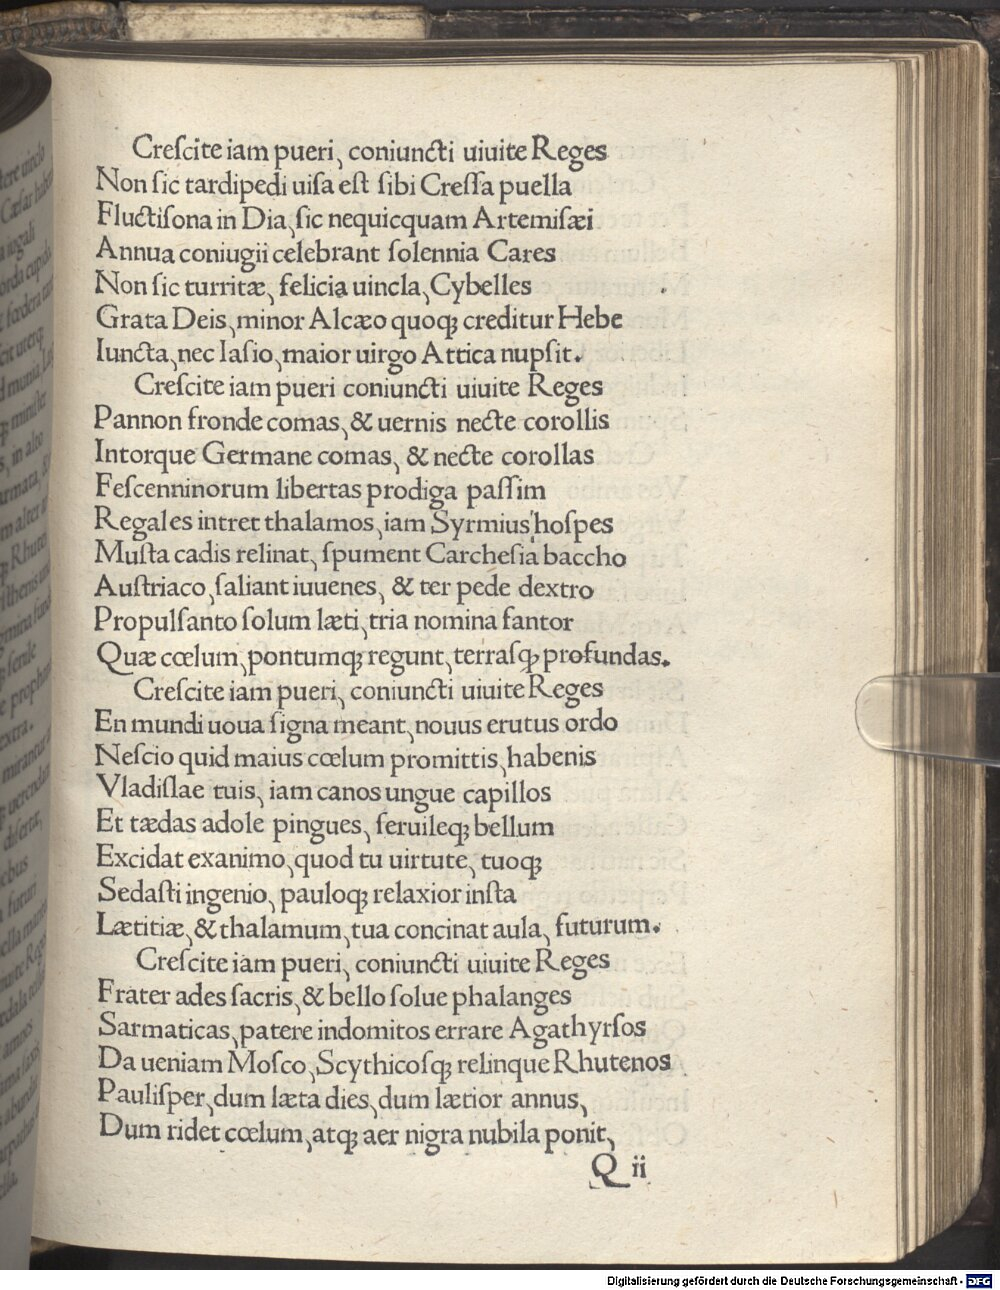 Creſcite iam pueri, coniuncti uiuite Reges
Non ſic tardipedi uiſa eſt ſibi Creſſa puella
Fluctiſona in Dia, ſic nequicquam Artemiſæi
Annua coniugii celebrant ſolennia Cares
Non ſic turritæ, felicia uincla, Cybelles
Grata Deis, minor Alcæo quoqꝫ creditur Hebe
Iuncta, nec Iaſio, maior uirgo Attica nupſit.
Creſcite iam pueri coniuncti uiuite Reges
Pannon fronde comas, & uernis necte corollis
Intorque Germane comas, & necte corollas
Feſcenninorum libertas prodiga paſſim
Regales intret thalamos, iam Syrmius hoſpes
Muſta cadis relinat, ſpument Carcheſia baccho
Auſtriaco, ſaliant iuuenes, & ter pede dextro
Propulſanto ſolum læti, tria nomina fantor
Quæ cœlum, pontumqꝫ regunt, terraſqꝫ profundas.
Creſcite iam pueri, coniuncti uiuite Reges
En mundi uoua ſigna meant, nouus erutus ordo
Neſcio quid maius cœlum promittis, habenis
Vladiſlae tuis, iam canos ungue capillos
Et tædas adole pingues, ſeruileqꝫ bellum
Excidat exanimo, quod tu uirtute, tuoqꝫ
Sedaſti ingenio, pauloqꝫ relaxior inſta
Lætitiæ, & thalamum, tua concinat aula, futurum.
Creſcite iam pueri, coniuncti uiuite Reges
Frater ades ſacris, & bello ſolue phalanges
Sarmaticas, patere indomitos errare Agathyrſos
Da ueniam Moſco, Scythicoſqꝫ relinque Rhutenos
Pauliſper, dum læta dies, dum lætior annus,
Dum ridet cœlum, atqꝫ aer nigra nubila ponit,
Q ii
Digitalisierung gefördert durch die Deutsche Forschungsgemeinschaft - DFG